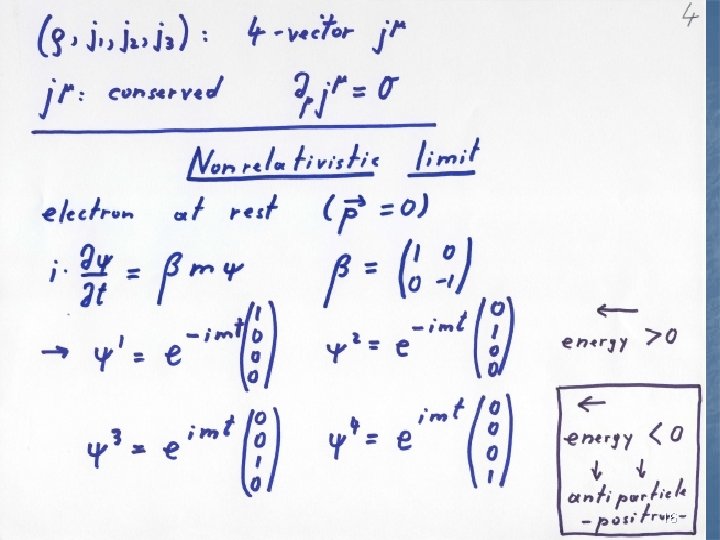 4
(ρ, j₁, j₂, j₃) : 4-vector j^μ
j^μ : conserved ∂_μ j^μ = 0
Nonrelativistic limit
electron at rest (p⃗ = 0)
i · ∂ψ/∂t = β m ψ β = (1 0 / 0 -1)
→ ψ¹ = e^{-imt} (1 0 0 0) ψ² = e^{-imt} (0 1 0 0) ← energy > 0
ψ³ = e^{imt} (0 0 1 0) ψ⁴ = e^{imt} (0 0 0 1)
←
energy < 0
↓ ↓
antiparticle
- positron -